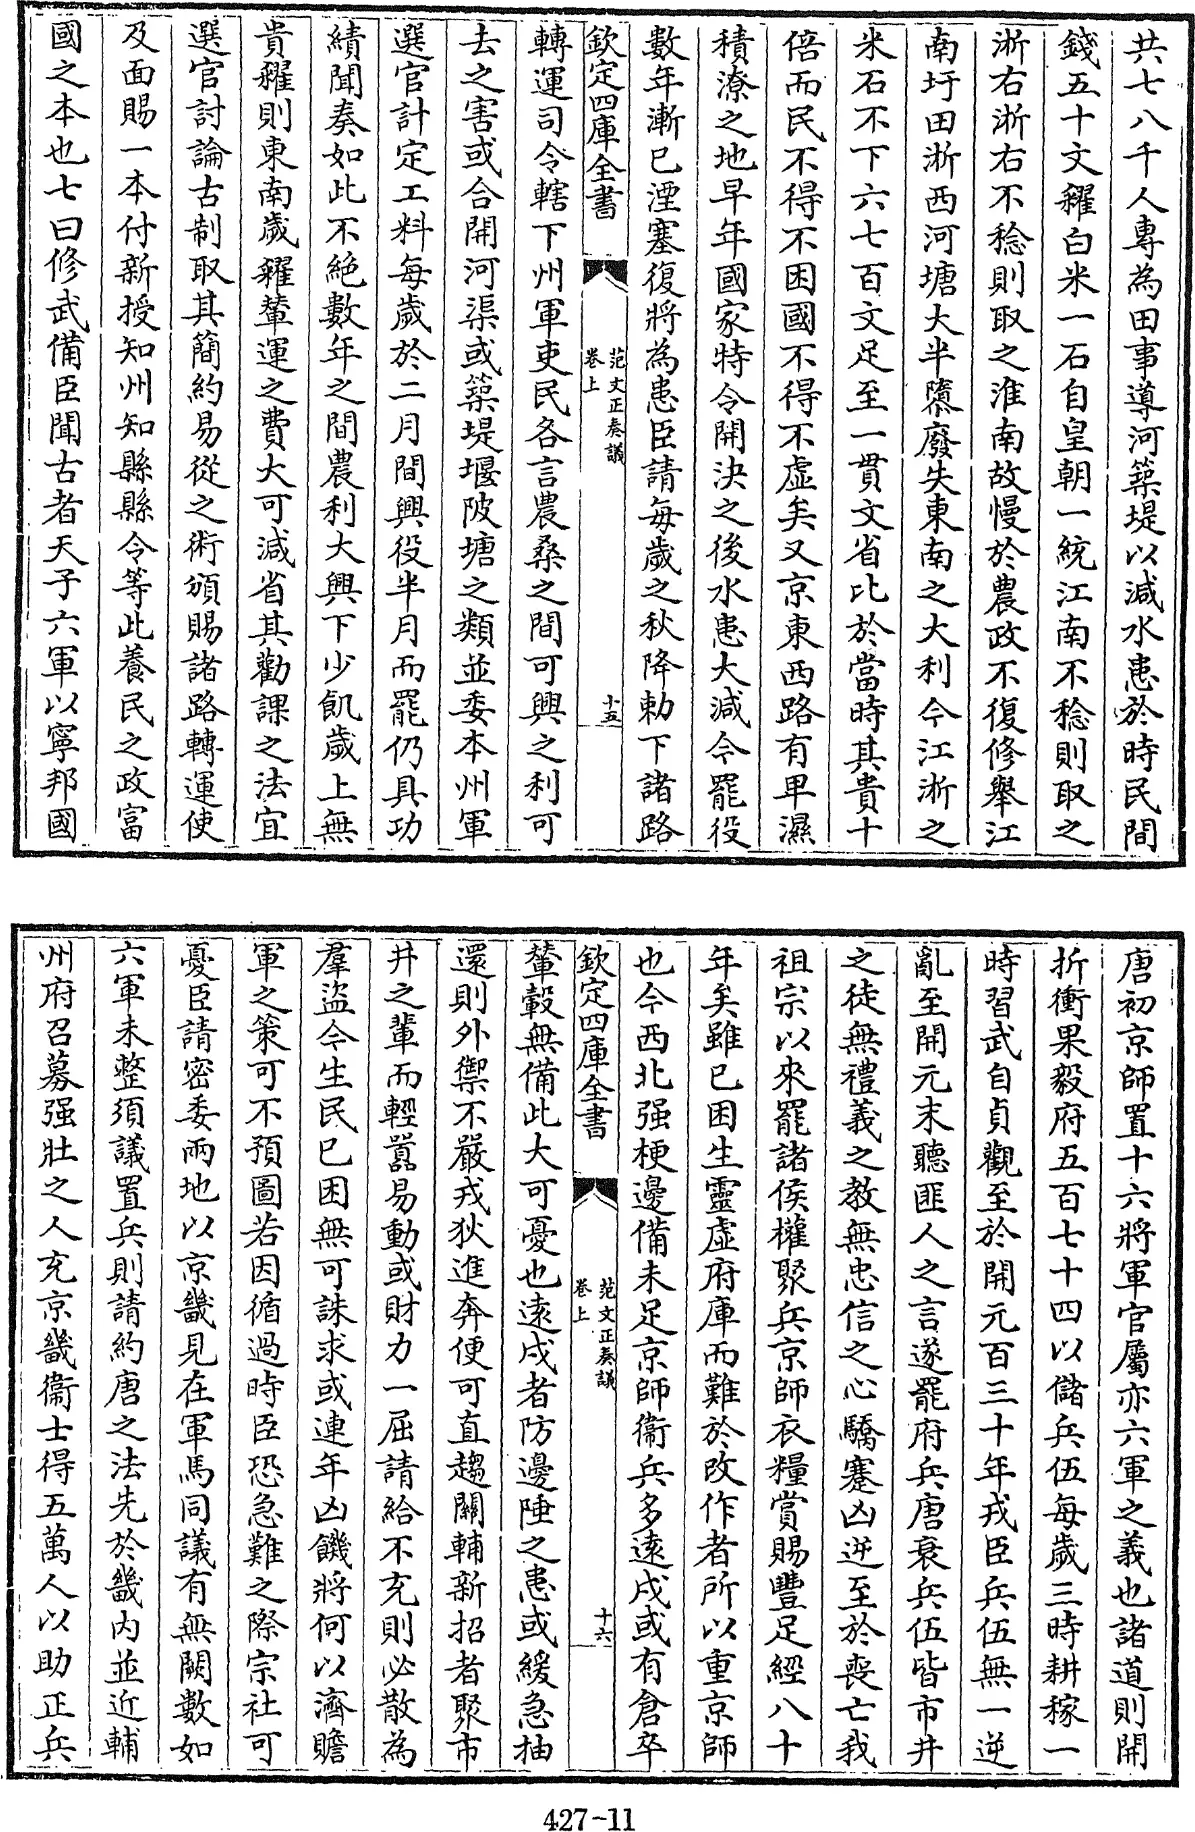 共七八千人專為田事導河築堤以減水患於時民間
錢五十文糴白米一石自皇朝一統江南不稔則取之
浙右浙右不稔則取之淮南故慢於農政不復修舉江
南圩田浙西河塘大半隳廢失東南之大利今江浙之
米石不下六七百文足至一貫文省比於當時其貴十
倍而民不得不困國不得不虛矣又京東西路有卑濕
積潦之地早年國家特令開決之後水患大減今罷役
數年漸已湮塞復將為患臣請每歲之秋降勅下諸路
欽定四庫全書
范文正奏議
卷上
十五
轉運司令轄下州軍吏民各言農桑之間可興之利可
去之害或合開河渠或築堤堰陂塘之類並委本州軍
選官計定工料每歲於二月間興役半月而罷仍具功
績聞奏如此不絶數年之間農利大興下少飢歲上無
貴糴則東南歲糴輦運之費大可減省其勸課之法宜
選官討論古制取其簡約易從之術頒賜諸路轉運使
及面賜一本付新授知州知縣縣令等此養民之政富
國之本也七曰修武備臣聞古者天子六軍以寧邦國
唐初京師置十六將軍官屬亦六軍之義也諸道則開
折衝果毅府五百七十四以儲兵伍每歲三時耕稼一
時習武自貞觀至於開元百三十年戎臣兵伍無一逆
亂至開元末聽匪人之言遂罷府兵唐衰兵伍皆市井
之徒無禮義之教無忠信之心驕蹇凶逆至於喪亡我
祖宗以來罷諸侯權聚兵京師衣糧賞賜豐足經八十
年矣雖已困生靈虛府庫而難於改作者所以重京師
也今西北强梗邊備未足京師衞兵多遠戍或有倉卒
欽定四庫全書
范文正奏議
卷上
十六
輦轂無備此大可憂也遠戍者防邊陲之患或緩急抽
還則外禦不嚴戎狄進奔便可直趨關輔新招者聚市
井之輩而輕囂易動或財力一屈請給不充則必散為
羣盜今生民已困無可誅求或連年凶饑將何以濟贍
軍之策可不預圖若因循過時臣恐急難之際宗社可
憂臣請密委兩地以京畿見在軍馬同議有無闕數如
六軍未整須議置兵則請約唐之法先於畿内並近輔
州府召募强壯之人充京畿衞士得五萬人以助正兵
427-11